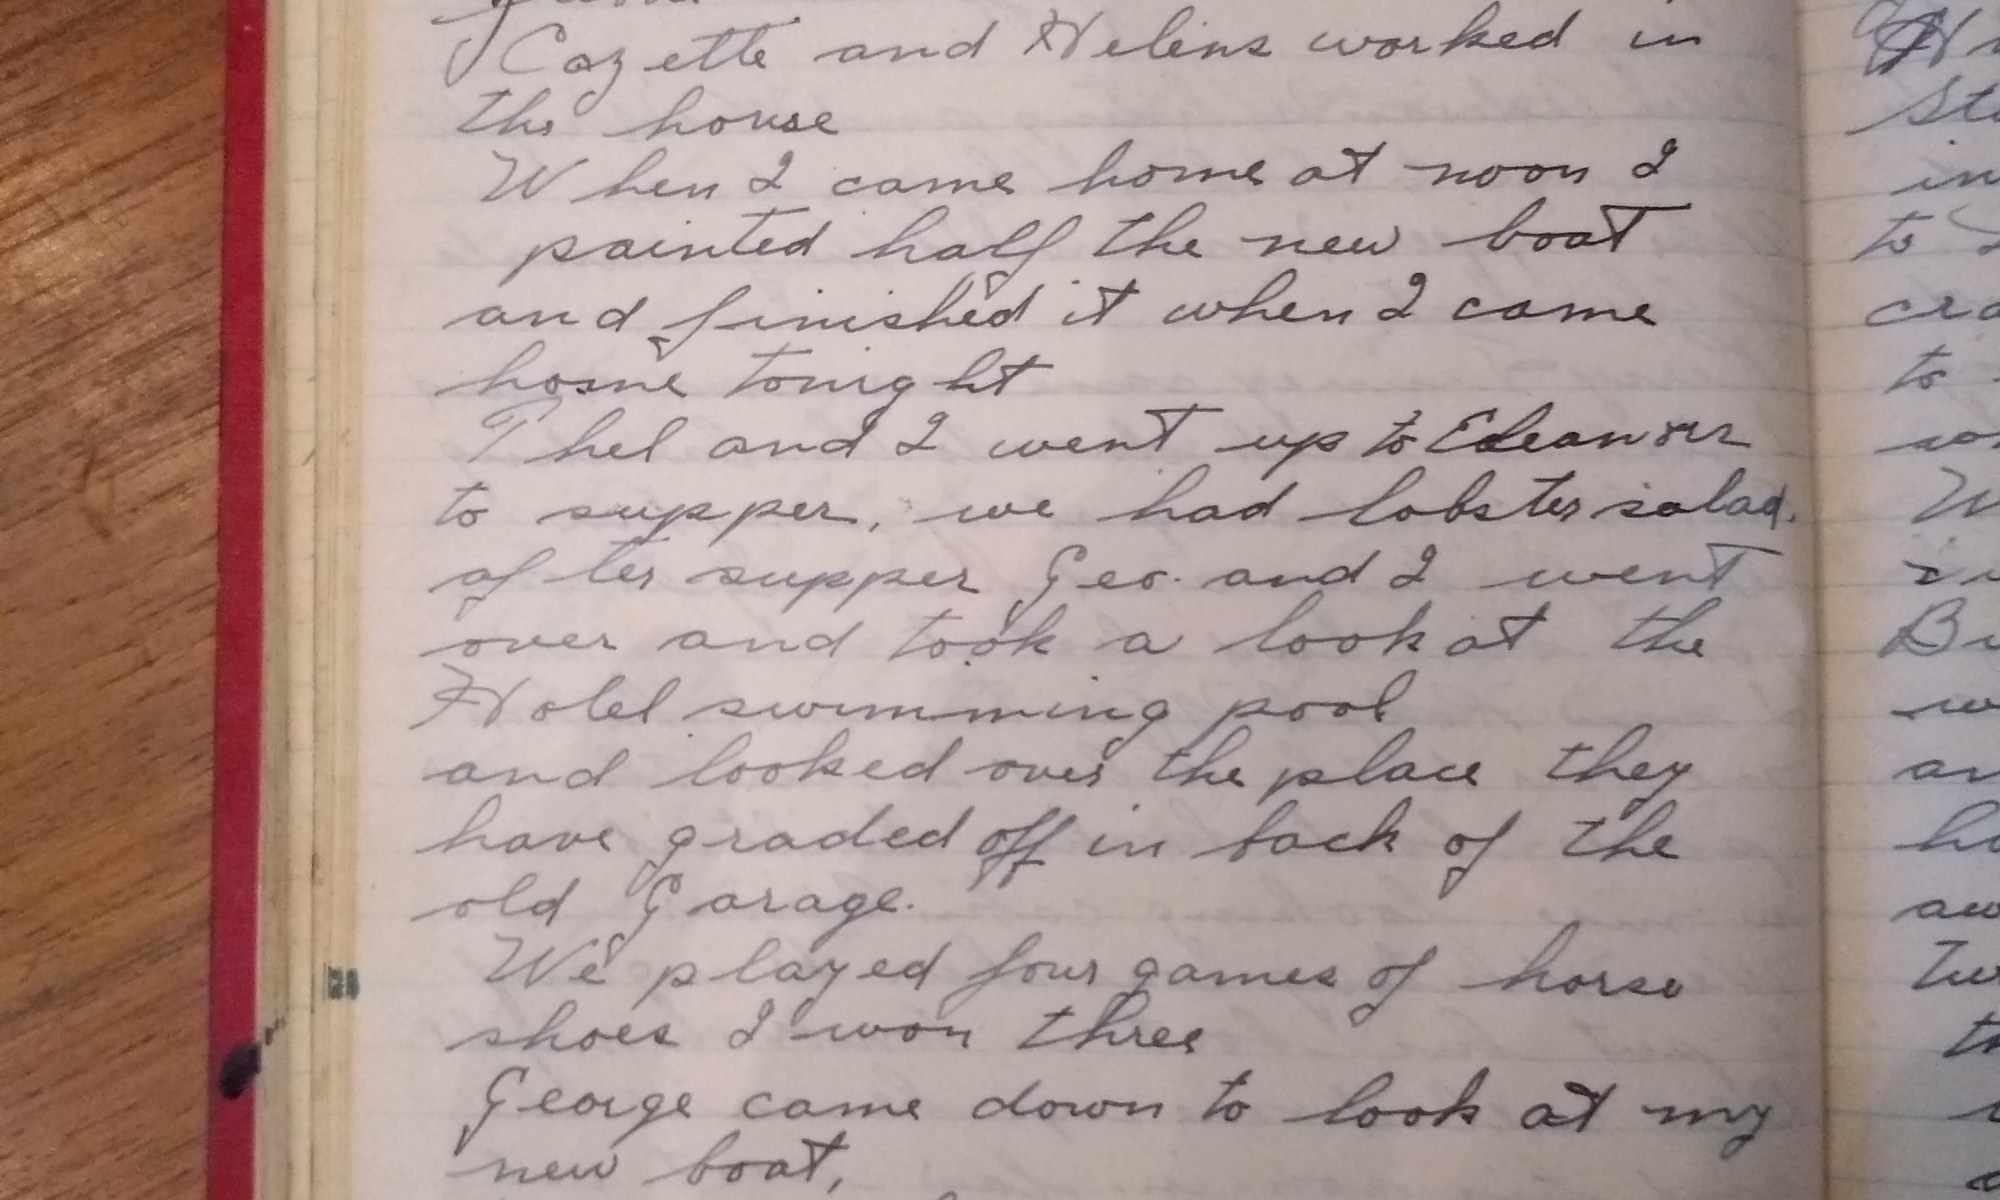 Cozette and Helene worked in
the house
When I came home at noon I
painted half the new boat
and finished it when I came
home tonight
Thel and I went up to Eleanor
to supper, we had lobster salad.
after supper Geo. and I went
over and took a look at the
Hotel swimming pool
and looked over the place they
have graded off in back of the
old Garage.
We played four games of horse
shoes I won three
George came down to look at my
new boat,